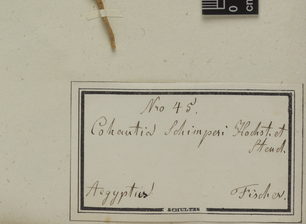 0
cm
Nro 45.
Cohautia Schimperi Hochst. et
Steud.
Aegyptus Fischer.
SCHULTES